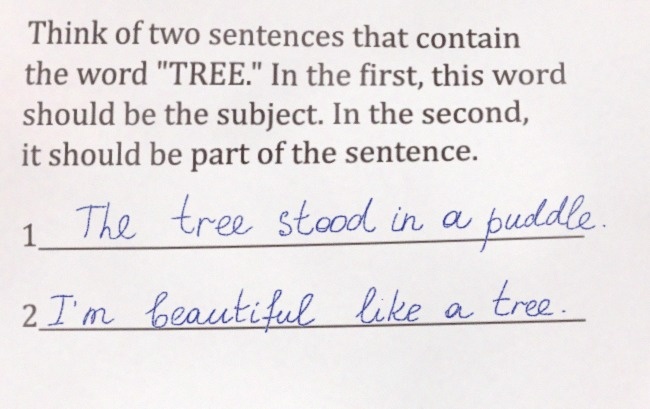 Think of two sentences that contain
the word "TREE." In the first, this word
should be the subject. In the second,
it should be part of the sentence.
1 The tree stood in a puddle.
2 I'm beautiful like a tree.